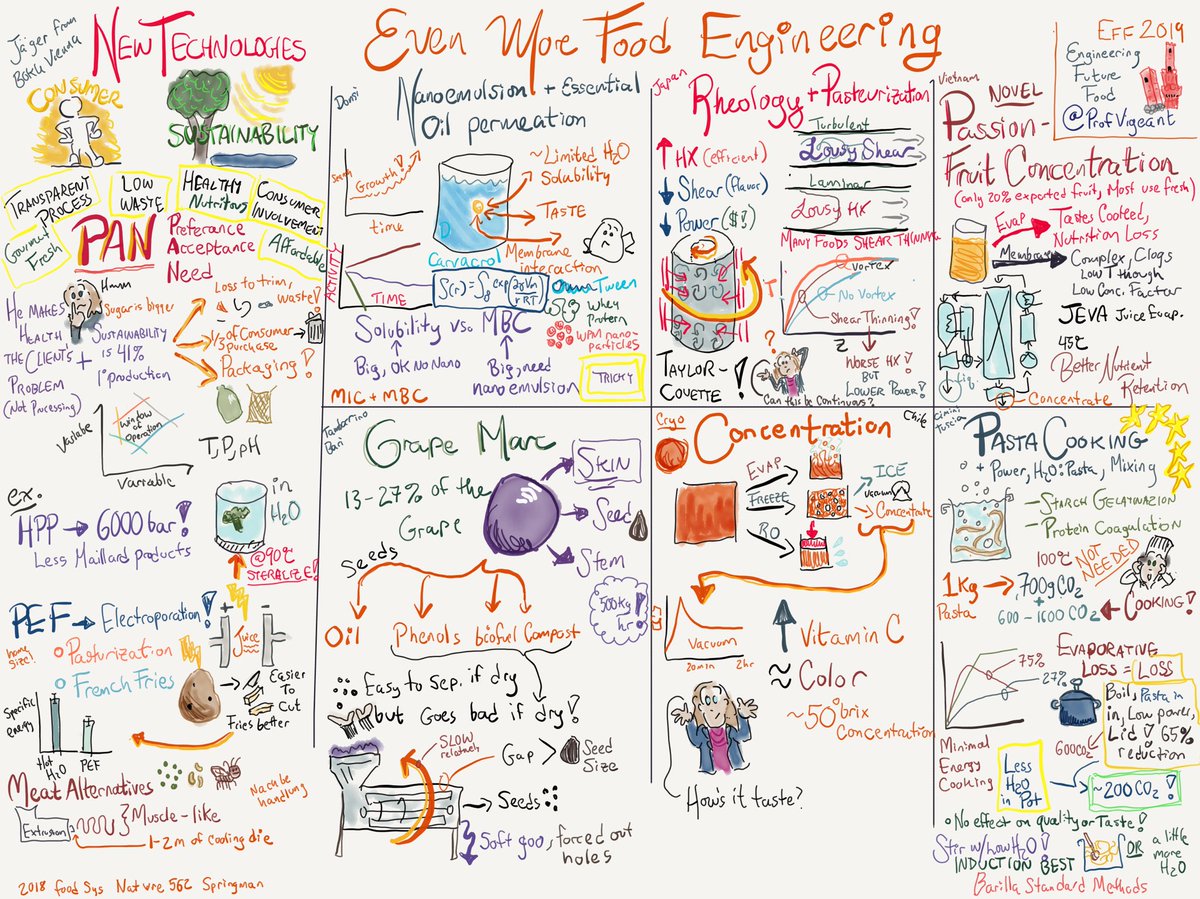 Jäger from
Boku Vienna
NEW TECHNOLOGIES
CONSUMER
SUSTAINABILITY
TRANSPARENT
PROCESS
LOW
WASTE
HEALTHY
Nutritous
CONSUMER
INVOLVEMENT
Gourmet
Fresh
PAN
Preferance
Acceptance
Need
Affordable
HE MAKES
HEALTH
THE CLIENT'S
PROBLEM
(Not Processing)
+
Hmm
Sugar is bigger
SUSTAINABILITY
is 41%
1° production
Loss to trim,
waste!
1/3 of Consumer
purchase
Packaging!
Variable
Window
of
Operation
Variable
T, P, pH
ex.
HPP → 6000 bar!
Less Maillard products
in
H2O
@90°C
STERALIZE!
PEF → Electroporation!
home
size!
Pasturization
French Fries
Juice
+
-
Easier
To
Cut
Fries better
Specific
energy
Hot
H2O
PEF
Meat Alternatives
Extrusion
} Muscle-like
1-2m of cooling die
2018 food Sys Nature 562 Springman
EVEN MORE FOOD ENGINEERING
EFF 2019
Engineering
Future
Food
@ProfVigeant
Donsi
Nanoemulsion + Essential
Oil permeation
Growth!
time
~Limited H2O
Solubility
TASTE
Membrane
interaction
Carvacrol
ACTIVITY
TIME
Tween
Whey
Protein
WPM nano-
particles
Solubility vs. MBC
Big, OK no Nano
Big, need
nanoemulsion
TRICKY
MIC + MBC
Japan
Rheology + Pasteurization
↑ HX (efficient)
↓ Shear (flavor)
↓ Power ($!)
Turbulent
Lousy Shear
Laminar
Lousy HX
MANY FOODS SHEAR THINNING
T
Vortex
No Vortex
Shear Thinning!
Z
WORSE HX!
BUT
LOWER POWER!
TAYLOR-
COUETTE!
?
Can this be Continuous?
Vietnam
NOVEL
Passion-
Fruit Concentration
(only 20% exported fruit, Most use fresh)
Evap
Tastes Cooked,
Nutrition Loss
Membrane
Complex, Clogs
Low Through
Low Conc. Factor
JEVA Juice Evap.
45°C
Better Nutrient
Retention
Liq.
Concentrate
Tamborrino
Bari
Grape Marc
13-27% of the
Grape
SKIN
Seed
Stem
seeds
500kg/
hr!
Oil Phenols biofuel Compost
Easy to Sep. if dry
but Goes bad if dry!
SLOW
Gap > Seed
Size
Seeds
Soft goo, forced out
holes
Cryo
Concentration
Chile
EVAP
FREEZE
RO
ICE
Vacuum
Concentrate
Vacuum
20min 2hr
↑ Vitamin C
≈ Color
~50° brix
Concentration
How's it taste?
Cimini
Tuscia
PASTA COOKING
+ Power, H2O:Pasta, Mixing
STARCH GELATINAZION
Protein Coagulation
100°C
NOT
NEEDED
1Kg → 700g CO2
Pasta
+
600-1600 CO2
← COOKING!
EVAPORATIVE
LOSS = LOSS
75%
27%
Boil, Pasta in
in, Low power,
Lid! 65%
reduction
600CO2
Minimal
Energy
Cooking
Less
H2O
in Pot
~200 CO2!
No effect on quality or Taste!
Stir w/low H2O!
INDUCTION BEST
OR
a little
more
H2O
Barilla Standard Methods